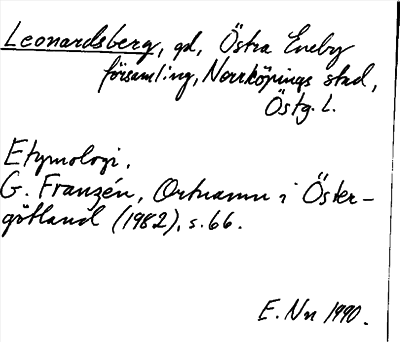 Leonardsberg, gd, Östra Eneby
församling, Norrköpings stad,
Östg. L.
Etymologi.
G. Franzén, Ortnamn i Öster-
götland (1982), s. 66.
E. Nn 1990.